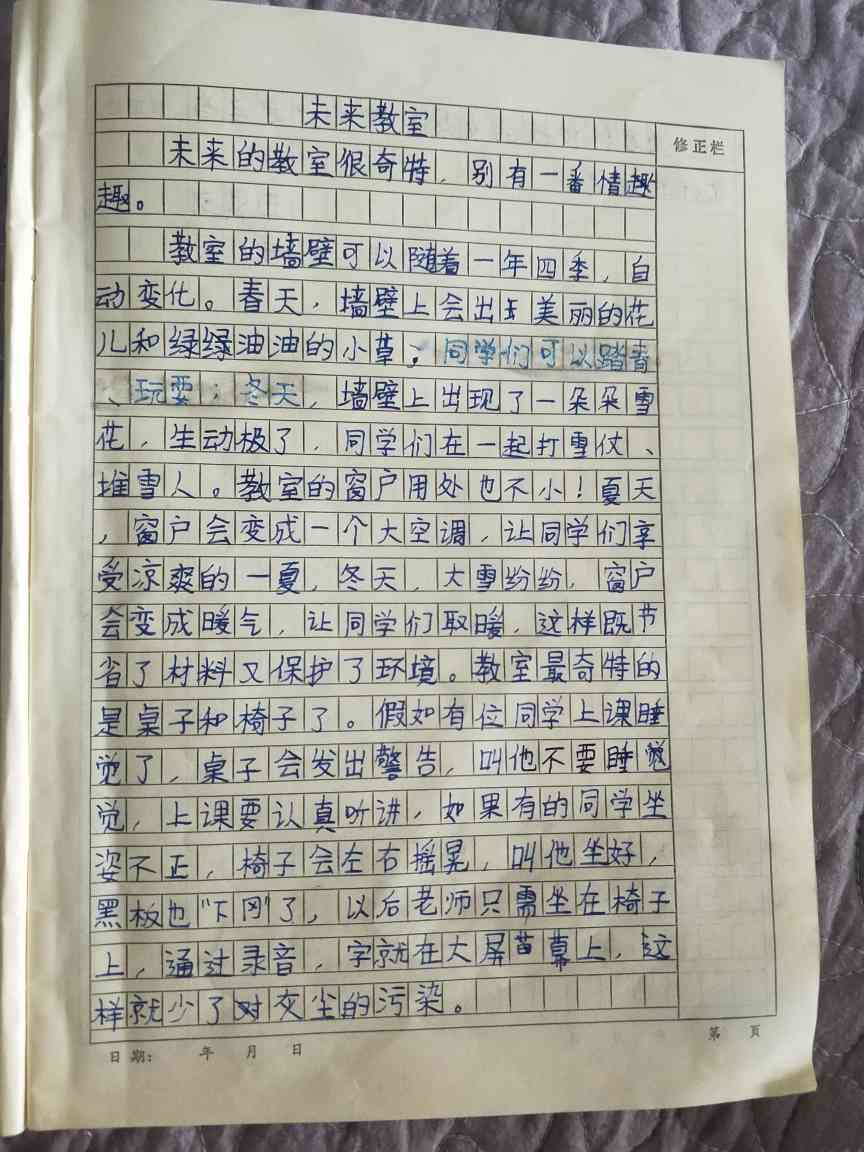 未来教室
修正栏
未来的教室很奇特，别有一番情趣
趣。
教室的墙壁可以随着一年四季，自
动变化。春天，墙壁上会出美丽的花
儿和绿绿油油的小草，同学们可以踏青
、玩耍；冬天，墙壁上出现了一朵朵雪
花，生动极了，同学们在一起打雪仗、
堆雪人。教室的窗户用处也不小！夏天
，窗户会变成一个大空调，让同学们享
受凉爽的一夏，冬天，大雪纷纷，窗户
会变成暖气，让同学们取暖，这样既节
省了材料又保护了环境。教室最奇特的
是桌子和椅子了。假如有位同学上课睡
觉了，桌子会发出警告，叫他不要睡觉
觉，上课要认真听讲，如果有的同学坐
姿不正，椅子会左右摇晃，叫他坐好，
黑板也“下冈”了，以后老师只需坐在椅子
上，通过录音，字就在大屏幕上，这
样就少了对灰尘的污染。
日期： 年 月 日
第 页